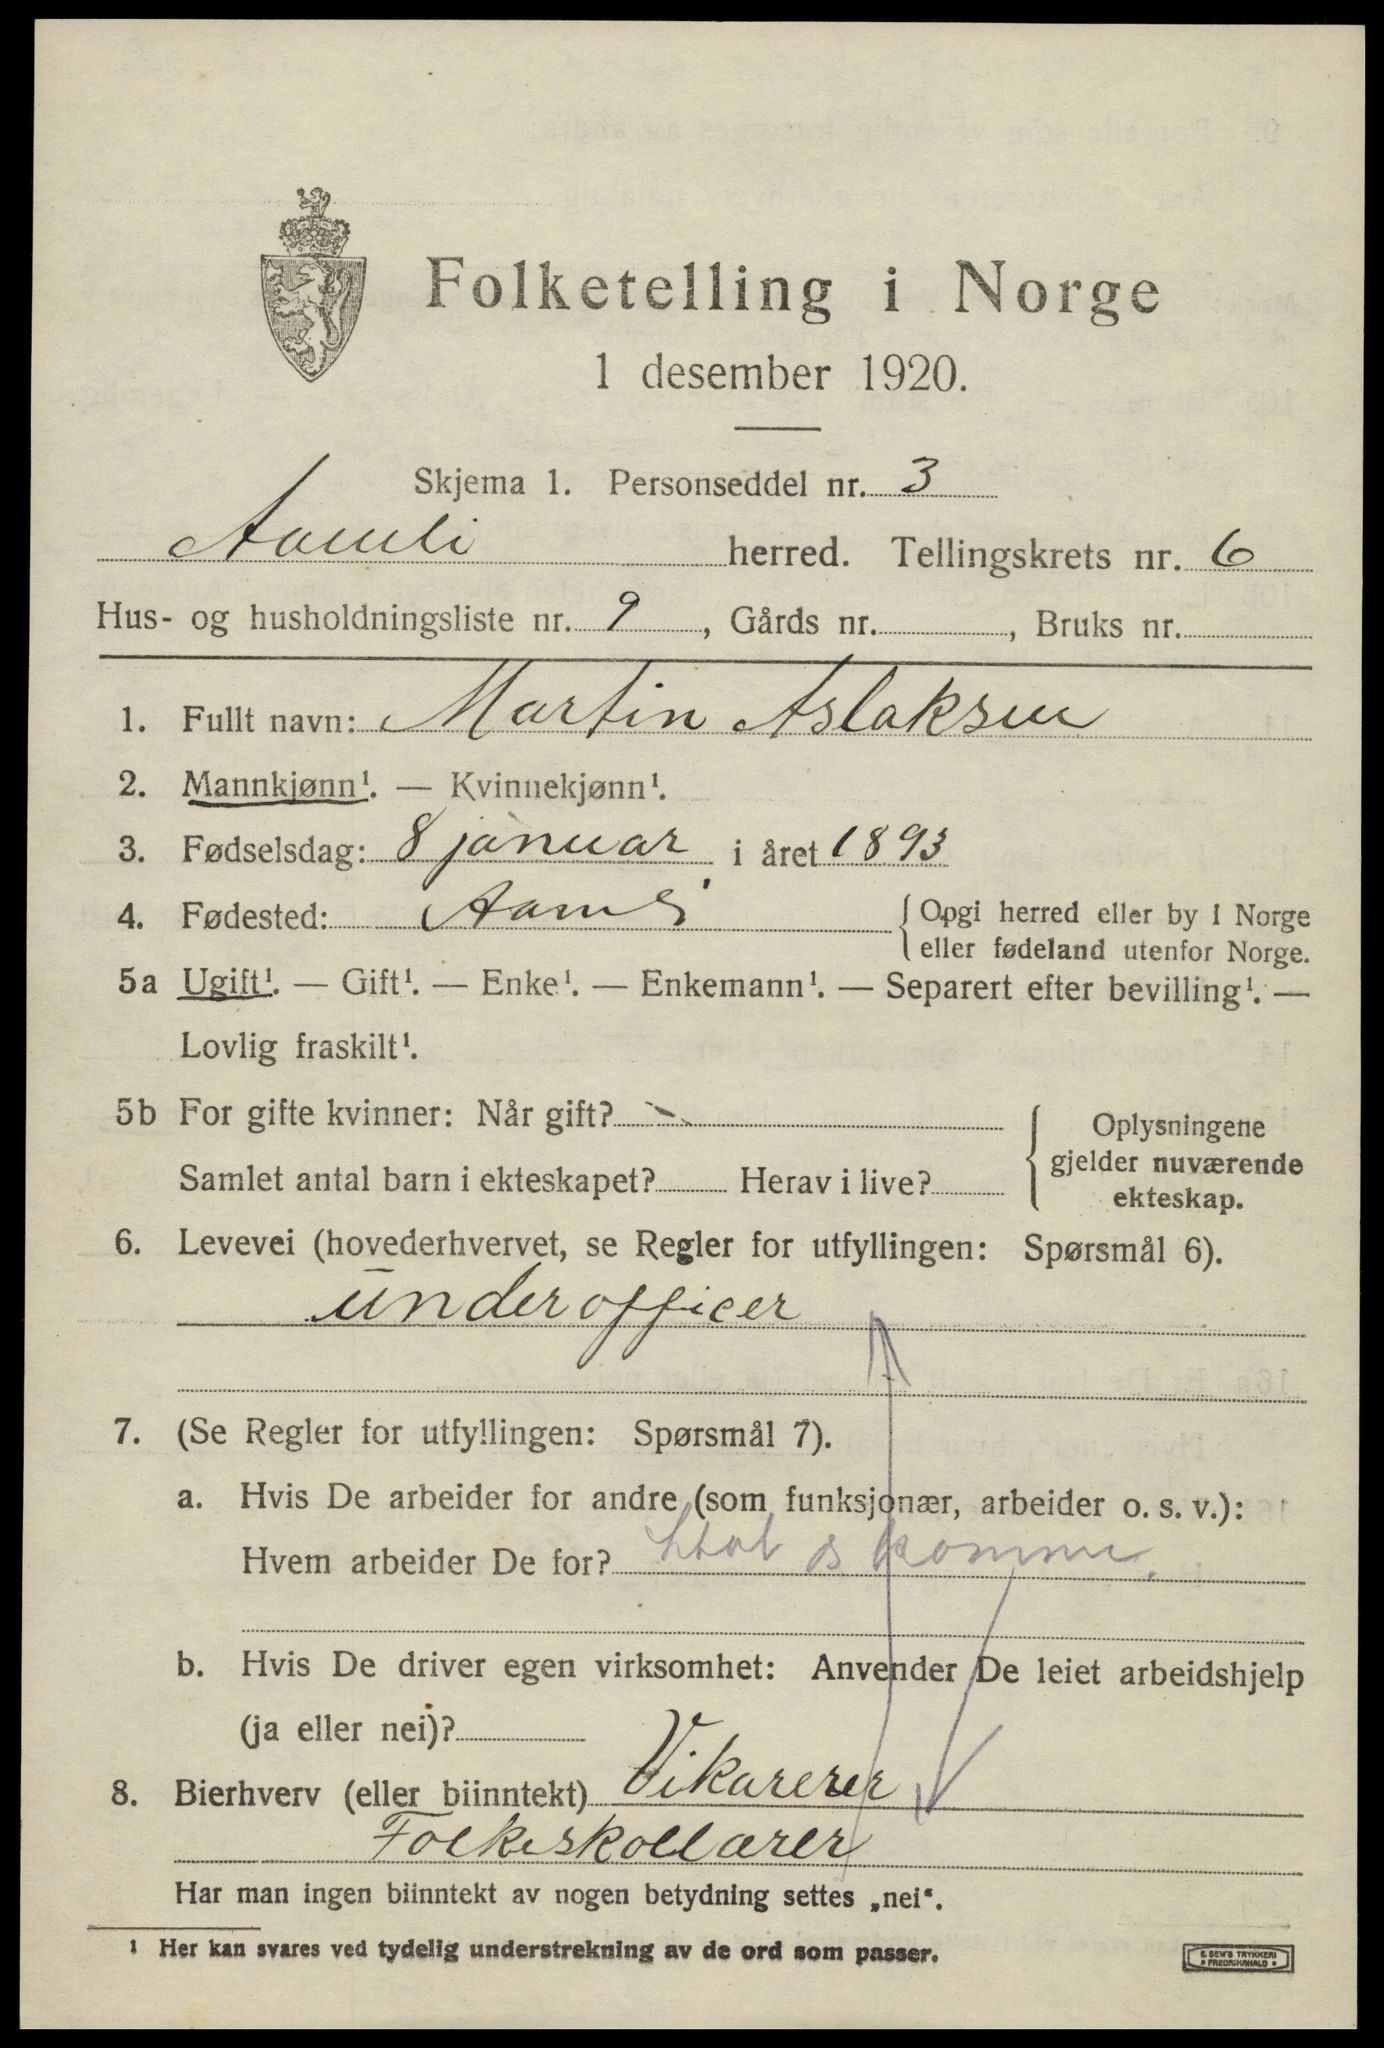 Folketelling i Norge
1 desember 1920.
Skjema 1. Personseddel nr. 3
Aamli herred. Tellingskrets nr. 6
Hus- og husholdningsliste nr. 9, Gårds nr. , Bruks nr.
1. Fullt navn: Martin Aslaksen
2. Mannkjønn¹. — Kvinnekjønn¹.
3. Fødselsdag: 8 januar i året 1893
4. Fødested: Aamli {Opgi herred eller by i Norge
eller fødeland utenfor Norge.
5a Ugift¹. — Gift¹. — Enke¹. — Enkemann¹. — Separert efter bevilling¹. —
Lovlig fraskilt¹.
5b For gifte kvinner: Når gift?
Samlet antal barn i ekteskapet? Herav i live?
Oplysningene
gjelder nuværende
ekteskap.
6. Levevei (hovederhvervet, se Regler for utfyllingen: Spørsmål 6).
underofficer
7. (Se Regler for utfyllingen: Spørsmål 7).
a. Hvis De arbeider for andre (som funksjonær, arbeider o. s. v.):
Hvem arbeider De for? Stat
b. Hvis De driver egen virksomhet: Anvender De leiet arbeidshjelp
(ja eller nei)?
8. Bierhverv (eller biinntekt) Vikarerer
Folkeskollærer
Har man ingen biinntekt av nogen betydning settes „nei“.
1 Her kan svares ved tydelig understrekning av de ord som passer.
E. SEM'S TRYKKERI
• FREDRIKSHALD •